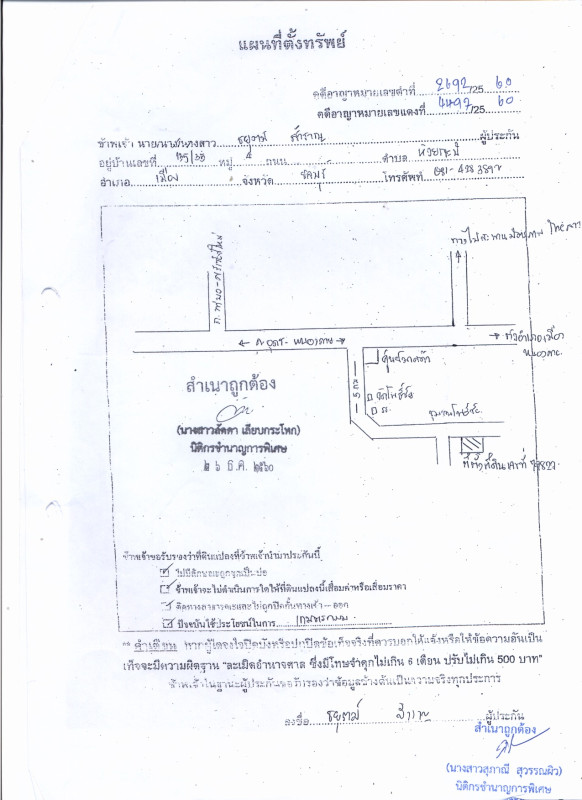 แผนที่ตั้งทรัพย์
คดีอาญาหมายเลขดำที่ 2692/25 60
คดีอาญาหมายเลขแดงที่ 4497/25 60
ข้าพเจ้า นาย/นาง/นางสาว ผู้ประกัน
อยู่บ้านเลขที่ 135/33 หมู่ 4 ถนน - ตำบล ห้วยกะปิ
อำเภอ เมือง จังหวัด ชลบุรี โทรศัพท์
ทางไปสะพานมิตรภาพ ไทย-ลาว
← ถ.อุดร-หนองคาย →
→ ตัวอำเภอเมือง
หนองคาย
ศูนย์ราชการ
5 กม
วัดโพธิ์ชัย
สำเนาถูกต้อง
(นางสาวลัดดา เลียบกระโทก)
นิติกรชำนาญการพิเศษ
๒๖ ธ.ค. ๒๕๖๐
ที่ตั้งที่ดินเลขที่
ข้าพเจ้าขอรับรองว่าที่ดินแปลงที่ข้าพเจ้านำมาประกันนี้
ไม่มีลักษณะถูกขุดเป็นบ่อ
ข้าพเจ้าจะไม่ดำเนินการใดให้ที่ดินแปลงนี้เสื่อมค่าหรือเสื่อมราคา
ติดทางสาธารณะและไม่ถูกปิดกั้นทางเข้า – ออก
ปัจจุบันใช้ประโยชน์ในการ เกษตรกรรม
** คำเตือน หากผู้ใดจงใจปิดบังหรือปกปิดข้อเท็จจริงที่ควรบอกให้แจ้งหรือให้ข้อความอันเป็น
เท็จจะมีความผิดฐาน "ละเมิดอำนาจศาล ซึ่งมีโทษจำคุกไม่เกิน 6 เดือน ปรับไม่เกิน 500 บาท"
ข้าพเจ้าในฐานะผู้ประกันขอรับรองว่าข้อมูลข้างต้นเป็นความจริงทุกประการ
ลงชื่อ ผู้ประกัน
สำเนาถูกต้อง
(นางสาวสุภาณี สุวรรณผิว)
นิติกรชำนาญการพิเศษ